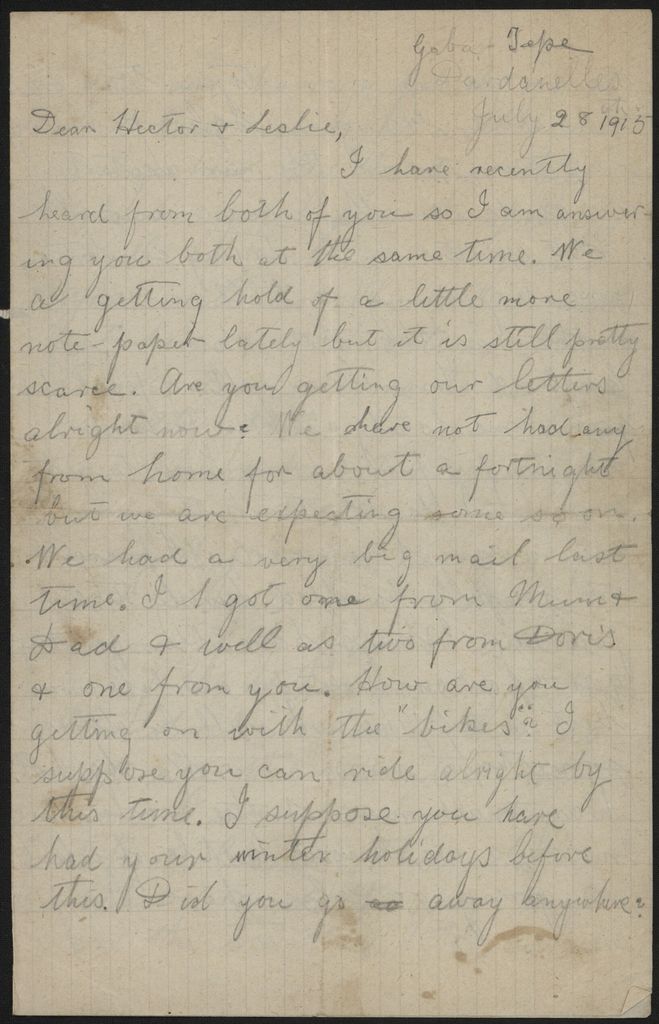 Gaba Tepe
Dardanelles
July 28th 1915
Dear Hector & Leslie,
I have recently
heard from both of you so I am answer-
ing you both at the same time. We
a getting hold of a little more
note-paper lately but it is still pretty
scarce. Are you getting our letters
alright now? We have not had any
from home for about a fortnight
but we are expecting some soon.
We had a very big mail last
time. I got one from Mum &
Dad & well as two from Doris
& one from you. How are you
getting on with the "bikes"? I
suppose you can ride alright by
this time. I suppose you have
had your winter holidays before
this. Did you go away anywhere?